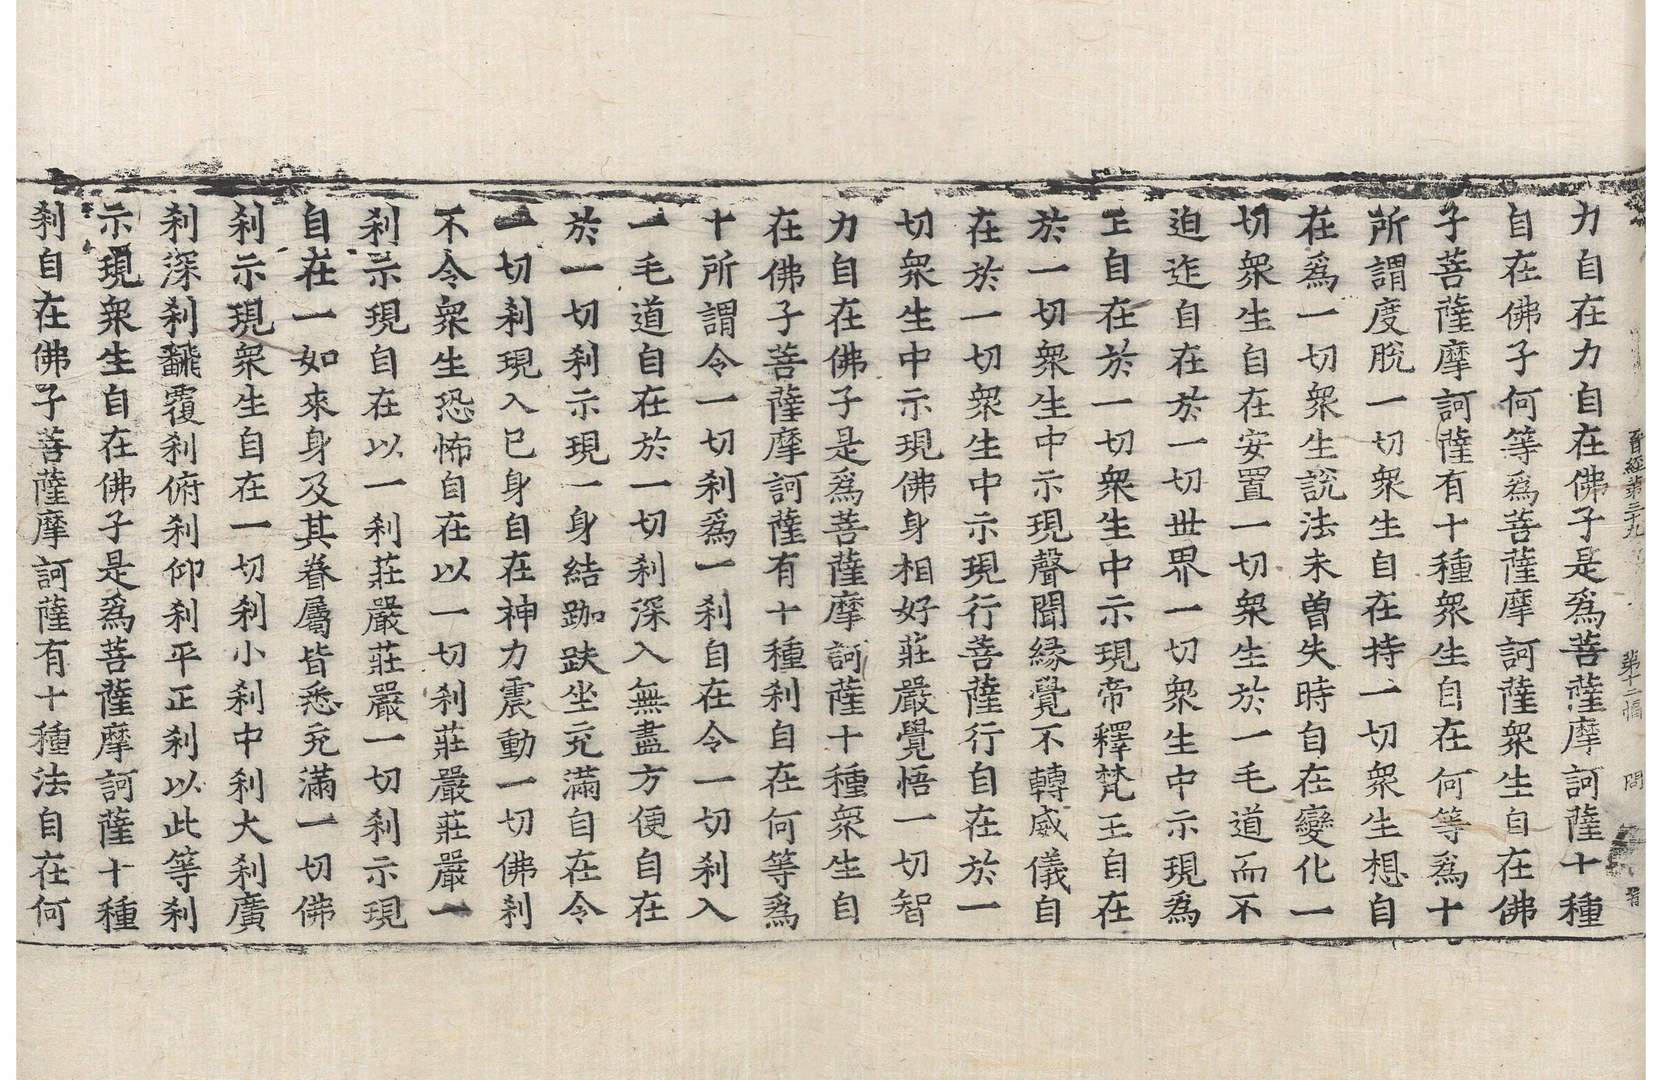 晉經第三十九　第十二幅　問　晉
力自在力自在佛子是爲菩薩摩訶薩十種
自在佛子何等爲菩薩摩訶薩衆生自在佛
子菩薩摩訶薩有十種衆生自在何等爲十
所謂度脫一切衆生自在持一切衆生想自
在爲一切衆生說法未曽失時自在變化一
切衆生自在安置一切衆生於一毛道而不
迫迮自在於一切世界一切衆生中示現爲
王自在於一切衆生中示現帝釋梵王自在
於一切衆生中示現聲聞緣覺不轉威儀自
在於一切衆生中示現行菩薩行自在於一
切衆生中示現佛身相好莊嚴覺悟一切智
力自在佛子是爲菩薩摩訶薩十種衆生自
在佛子菩薩摩訶薩有十種刹自在何等爲
十所謂令一切刹爲一刹自在令一切刹入
一毛道自在於一切刹深入無盡方便自在
於一切刹示現一身結跏趺坐充滿自在令
一切刹現入已身自在神力震動一切佛刹
不令衆生恐怖自在以一切刹莊嚴莊嚴一
刹示現自在以一刹莊嚴莊嚴一切刹示現
自在一如來身及其眷屬皆悉充滿一切佛
刹示現衆生自在一切刹小刹中刹大刹廣
刹深刹飜覆刹俯刹仰刹平正刹以此等刹
示現衆生自在佛子是爲菩薩摩訶薩十種
刹自在佛子菩薩摩訶薩有十種法自在何